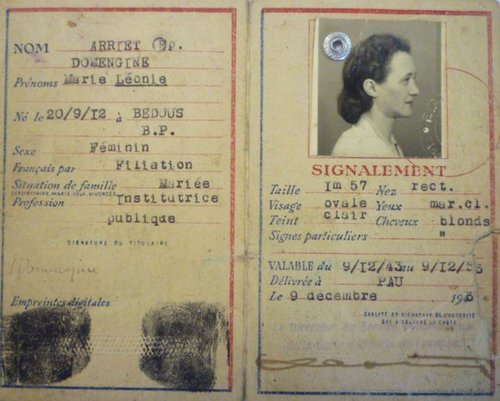 NOM ARRIET EP.
DOMENGINE
Prénoms Marie Léonie
Né le 20/9/12 à BEDOUS
B.P.
Sexe Féminin
Français par Filiation
Situation de famille Mariée
(CÉLIBATAIRE, MARIÉ, VEUF, DIVORCÉ)
Profession Institutrice
publique
SIGNATURE DU TITULAIRE
Empreintes digitales
SIGNALEMENT
Taille 1m 57 Nez rect.
Visage ovale Yeux mar.cl.
Teint clair Cheveux blonds
Signes particuliers "
VALABLE du 9/12/43 au 9/12/53
Délivrée à PAU
Le 9 decembre 193
QUALITÉ ET SIGNATURE DE L'AUTORITÉ
QUI A DÉLIVRÉ LA CARTE
Le Directeur du Service